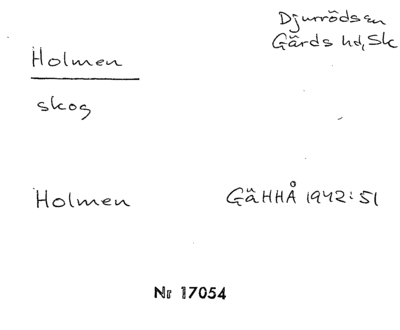 Djurröds sn
Gärds hd, Sk
Holmen
skog
Holmen GäHHÅ 1942:51
Nr 17054